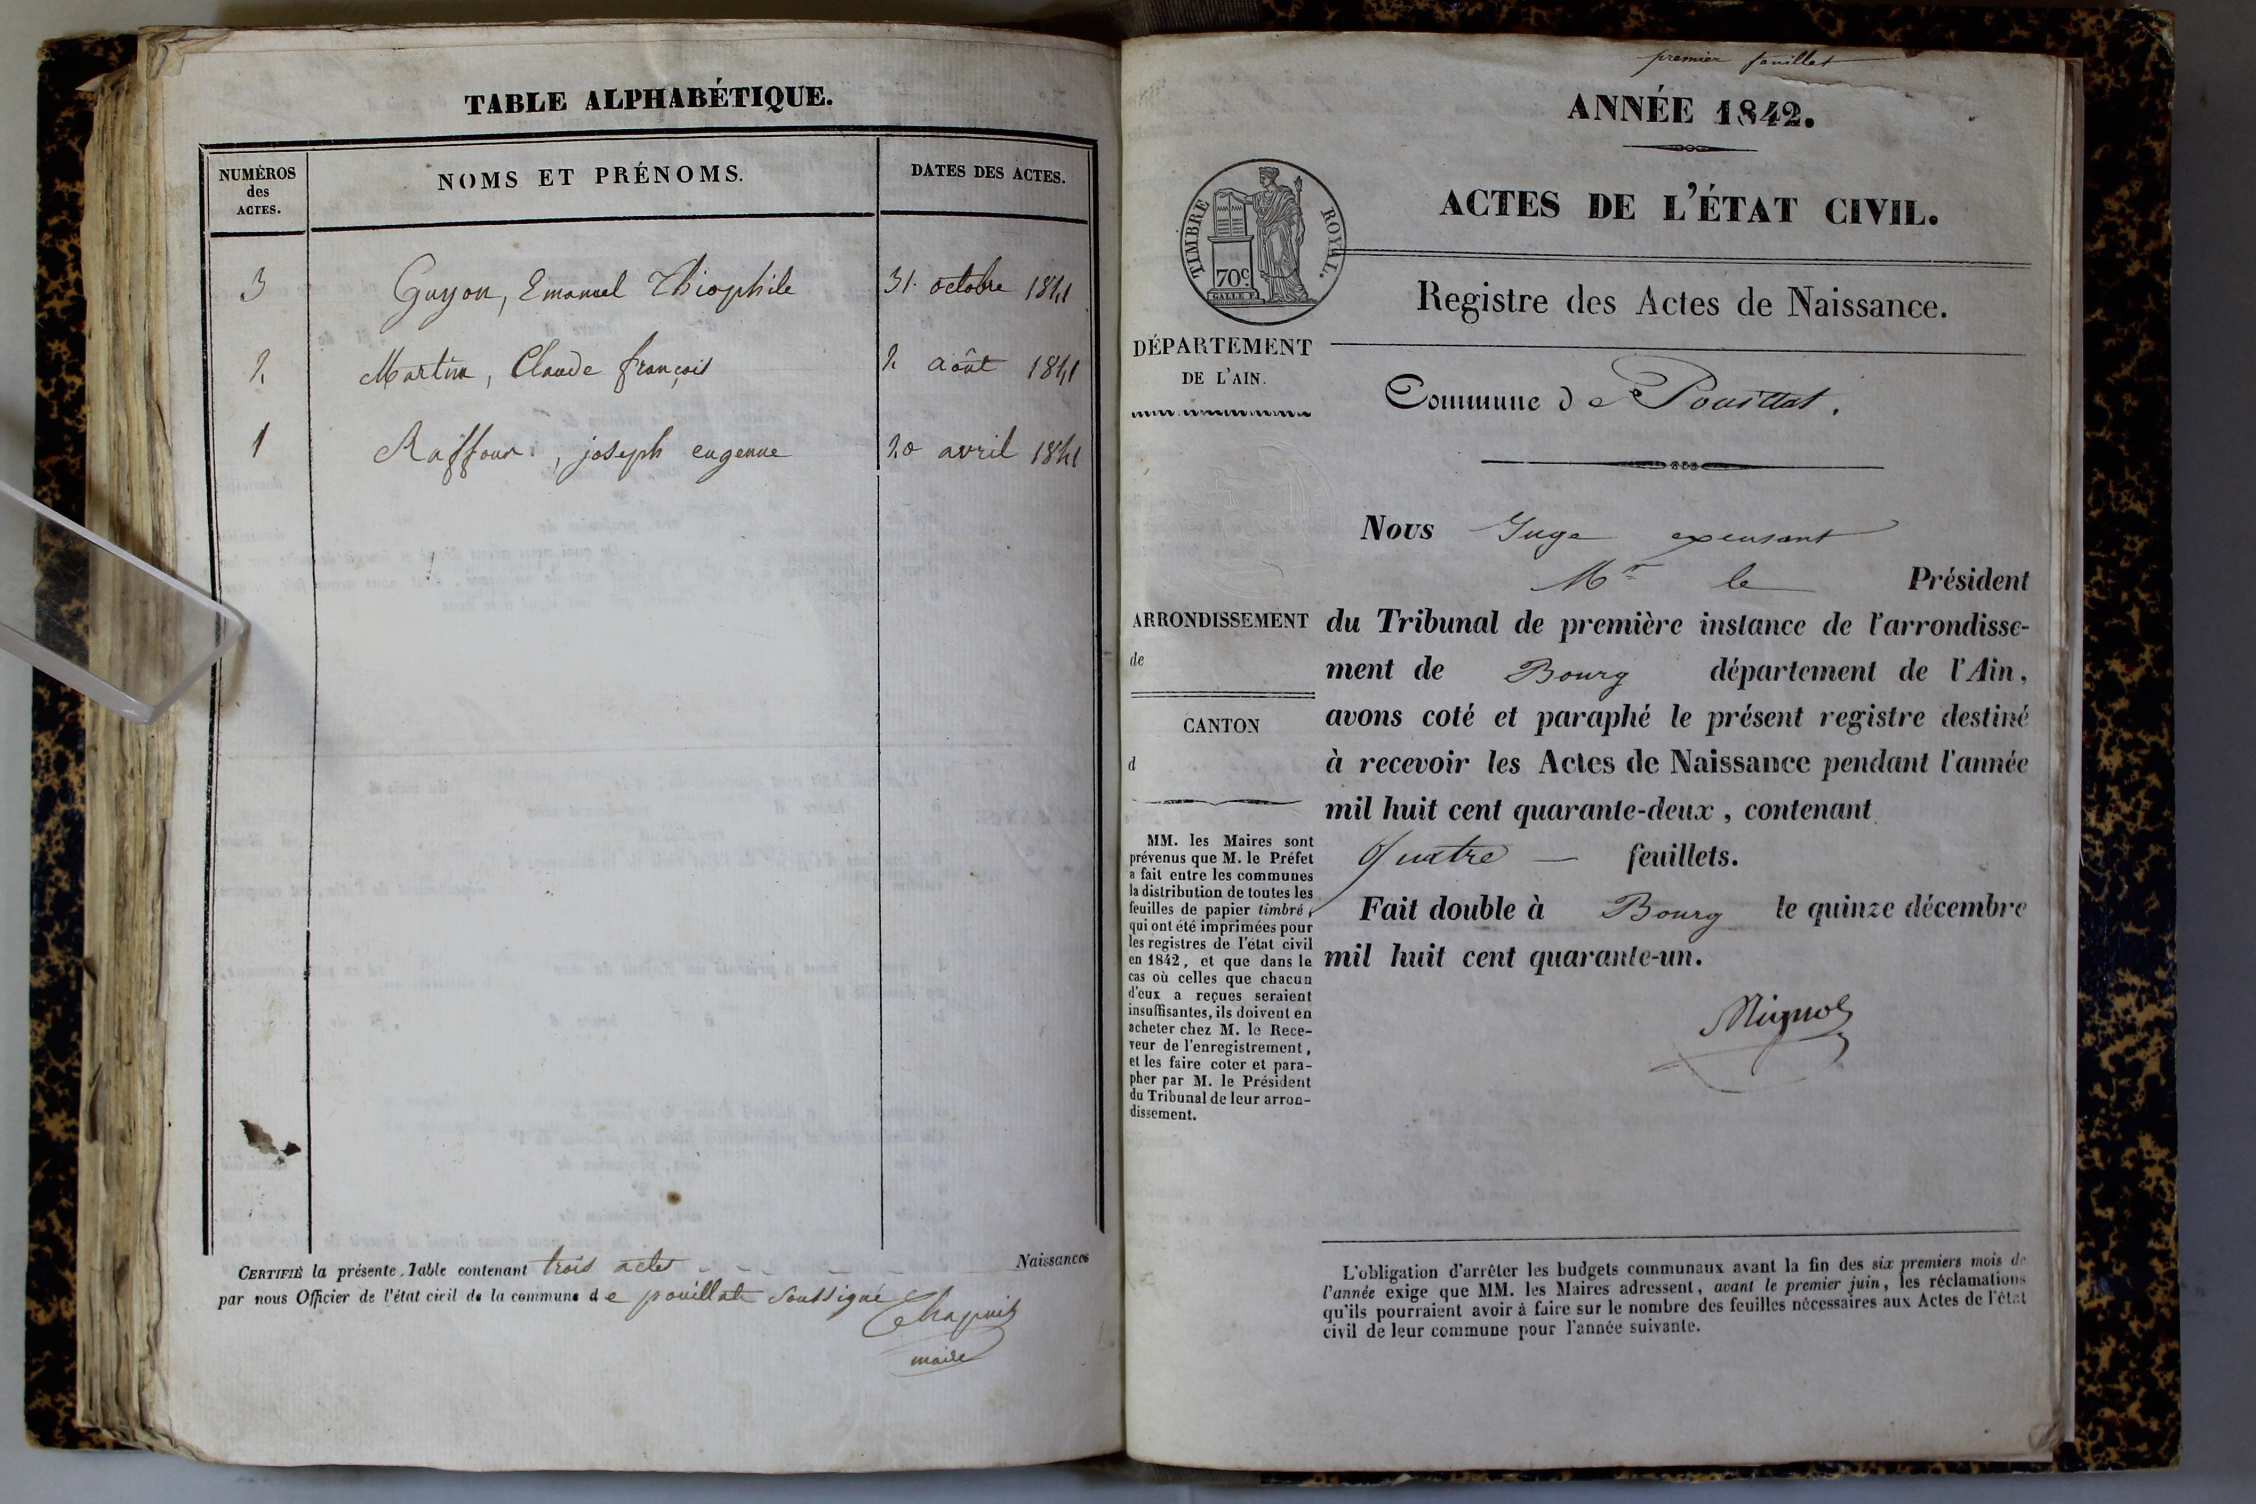 TABLE ALPHABÉTIQUE.
NUMÉROS
des
ACTES.
NOMS ET PRÉNOMS.
DATES DES ACTES.
3 Guyon, Emanuel Thiophile 31 octobre 1841
2 Martin, Claude françois 2 août 1841
1 Raffour, joseph eugenne 20 avril 1841
CERTIFIÉ la présente Table contenant trois actes Naissances
par nous Officier de l'état civil de la commune de pouillat soussigné
Chapuis
maire
premier feuillet
ANNÉE 1842.
ACTES DE L'ÉTAT CIVIL.
TIMBRE ROYAL.
70c
Registre des Actes de Naissance.
DÉPARTEMENT
DE L'AIN.
Commune de Pouillat.
Nous Juge excusant
Mr le Président
ARRONDISSEMENT
de
CANTON
d
du Tribunal de première instance de l'arrondisse-
ment de Bourg département de l'Ain,
avons coté et paraphé le présent registre destiné
à recevoir les Actes de Naissance pendant l'année
mil huit cent quarante-deux, contenant
Quatre — feuillets.
Fait double à Bourg le quinze décembre
mil huit cent quarante-un.
MM. les Maires sont
prévenus que M. le Préfet
a fait entre les communes
la distribution de toutes les
feuilles de papier timbré,
qui ont été imprimées pour
les registres de l'état civil
en 1842, et que dans le
cas où celles que chacun
d'eux a reçues seraient
insuffisantes, ils doivent en
acheter chez M. le Rece-
veur de l'enregistrement,
et les faire coter et para-
pher par M. le Président
du Tribunal de leur arron-
dissement.
L'obligation d'arrêter les budgets communaux avant la fin des six premiers mois de
l'année exige que MM. les Maires adressent, avant le premier juin, les réclamations
qu'ils pourraient avoir à faire sur le nombre des feuilles nécessaires aux Actes de l'état
civil de leur commune pour l'année suivante.